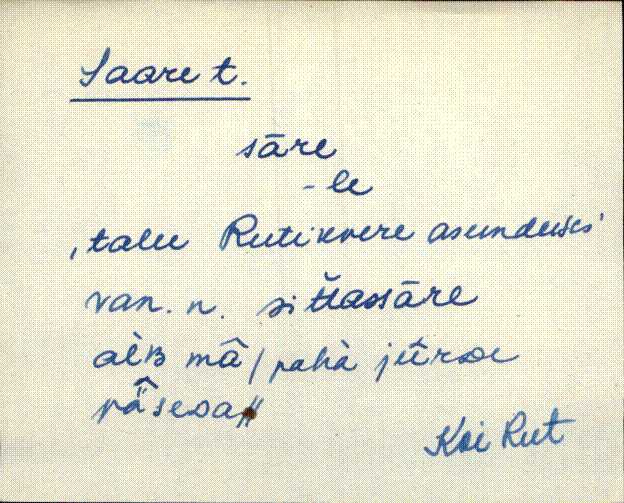 Saare t.
sāre
-le
'talu Rutikvere asunduses'
van. n. sittassāre
alB mâ / pahà jūrδe
Koi Rut